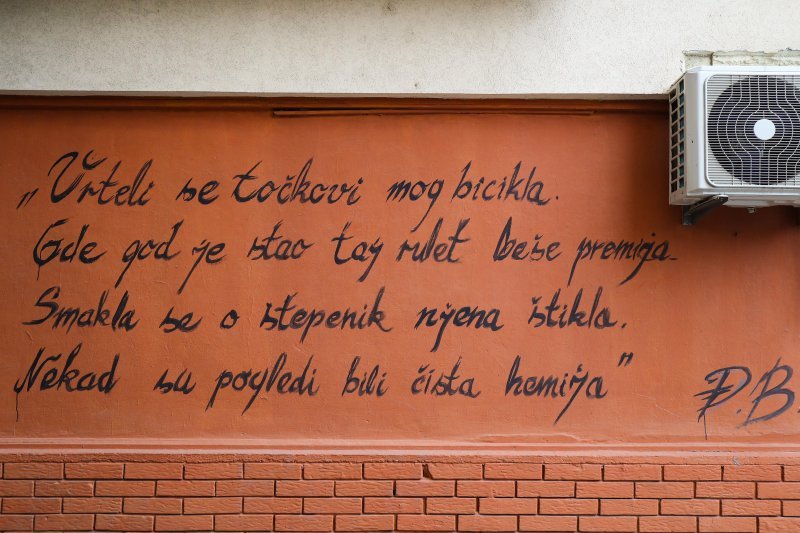 „Vrteli se točkovi mog bicikla.
Gde god je stao taj rulet beše premija.
Smakla se o stepenik njena štikla.
Nekad su pogledi bili čista hemija"
Đ.B.